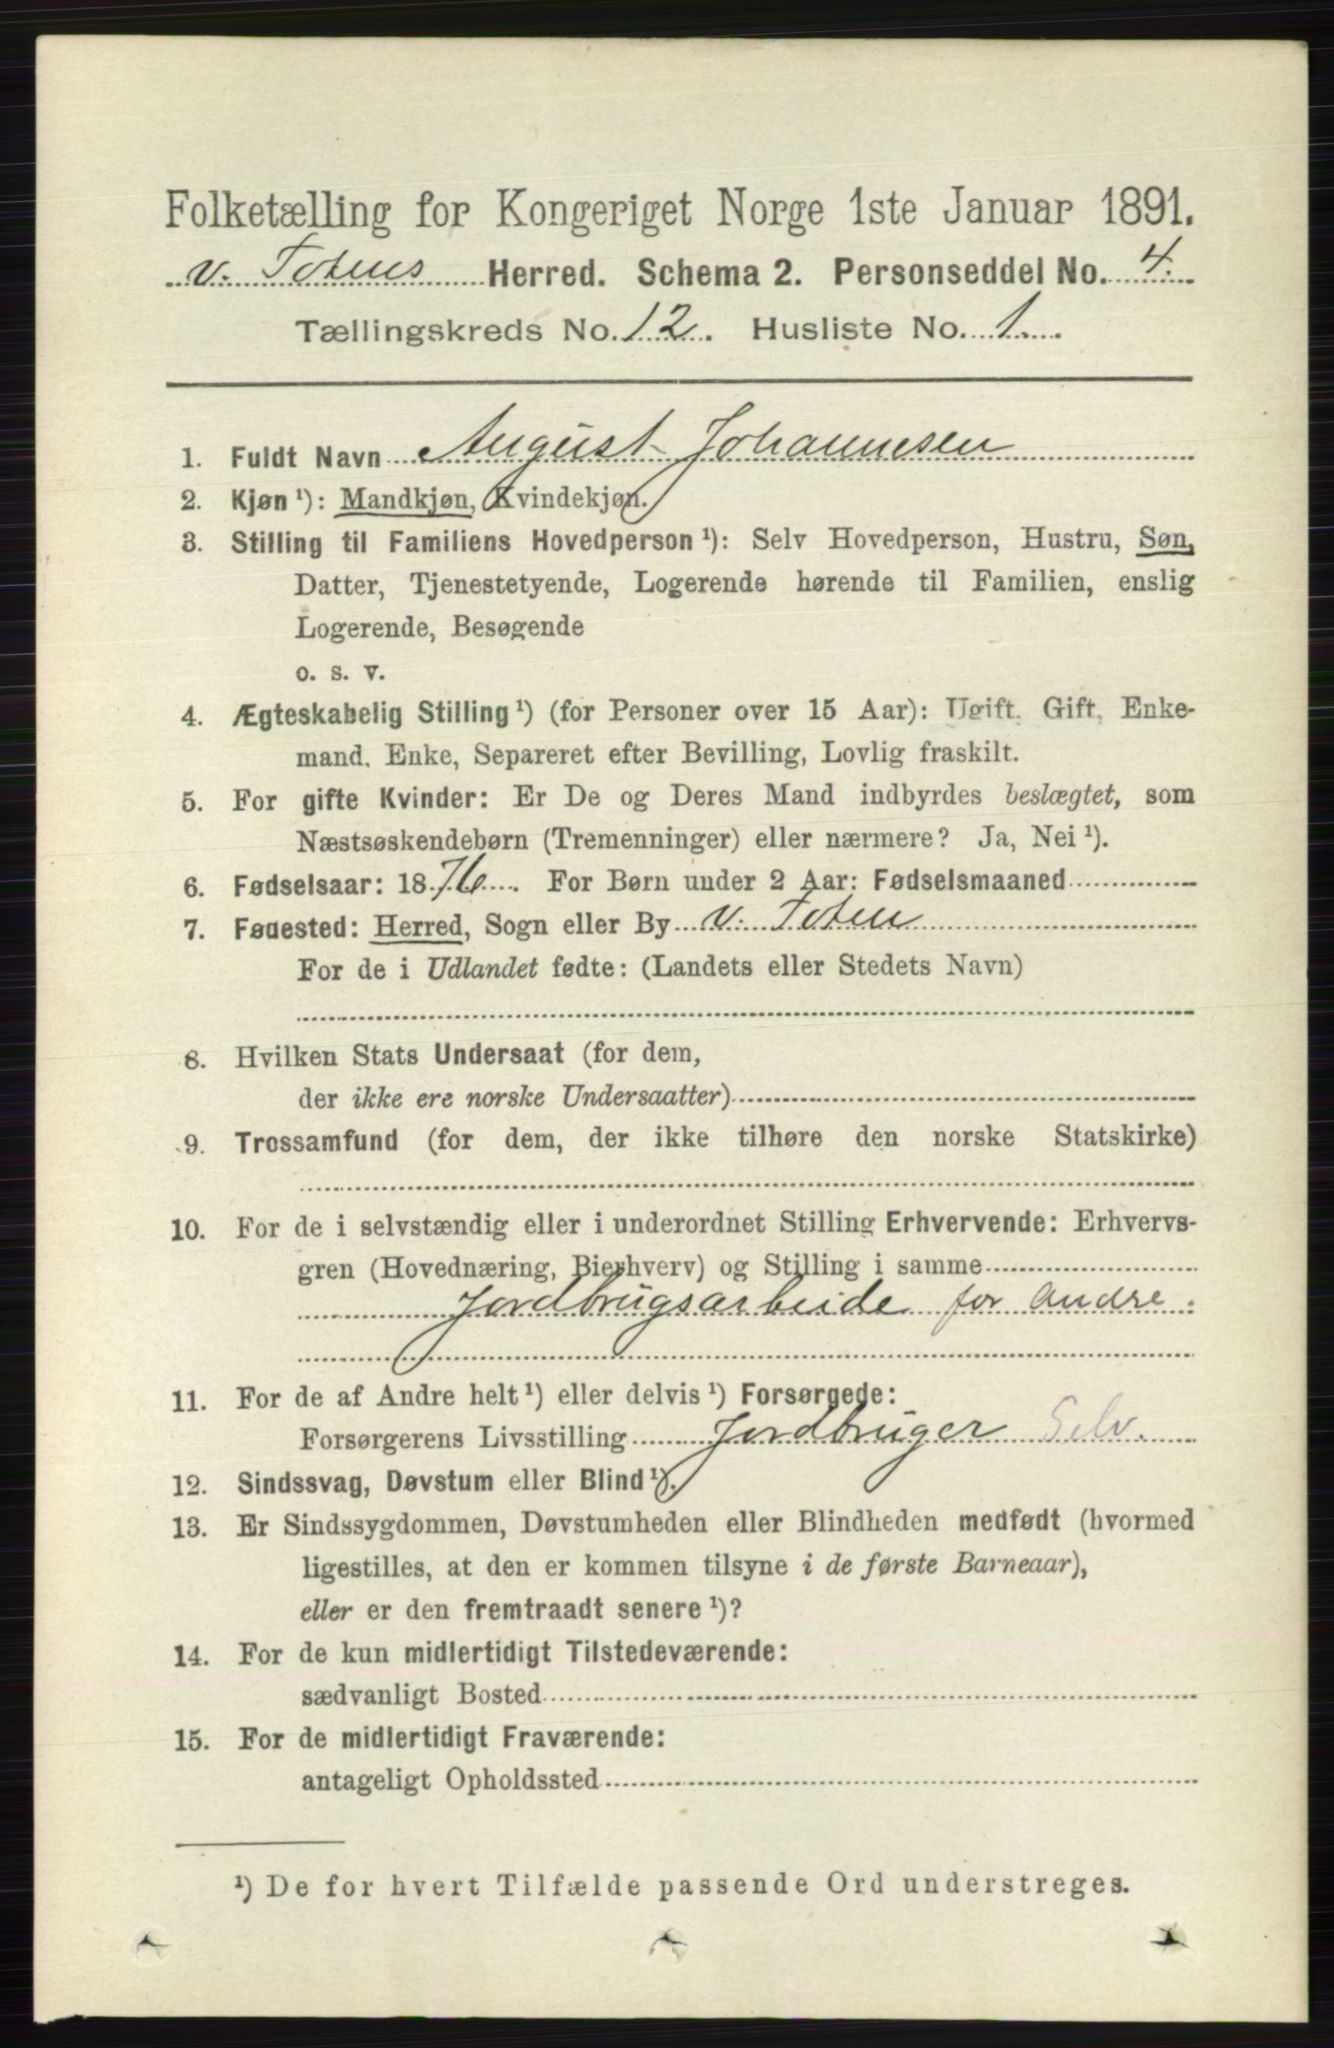 Folketælling for Kongeriget Norge 1ste Januar 1891.
v. Totens Herred. Schema 2. Personseddel No. 4.
Tællingskreds No. 12. Husliste No. 1.
1. Fuldt Navn August Johannesen
2. Kjøn ¹): Mandkjøn, Kvindekjøn.
3. Stilling til Familiens Hovedperson ¹): Selv Hovedperson, Hustru, Søn,
Datter, Tjenestetyende, Logerende hørende til Familien, enslig
Logerende, Besøgende
o. s. v.
4. Ægteskabelig Stilling ¹) (for Personer over 15 Aar): Ugift, Gift, Enke-
mand, Enke, Separeret efter Bevilling, Lovlig fraskilt.
5. For gifte Kvinder: Er De og Deres Mand indbyrdes beslægtet, som
Næstsøskendebørn (Tremenninger) eller nærmere? Ja, Nei ¹).
6. Fødselsaar: 1876. For Børn under 2 Aar: Fødselsmaaned
7. Fødested: Herred, Sogn eller By v. Toten
For de i Udlandet fødte: (Landets eller Stedets Navn)
8. Hvilken Stats Undersaat (for dem,
der ikke ere norske Undersaatter)
9. Trossamfund (for dem, der ikke tilhøre den norske Statskirke)
10. For de i selvstændig eller i underordnet Stilling Erhvervende: Erhvervs-
gren (Hovednæring, Bierhverv) og Stilling i samme
Jordbrugsarbeide for Andre.
11. For de af Andre helt ¹) eller delvis ¹) Forsørgede:
Forsørgerens Livsstilling Jordbruger Selv.
12. Sindssvag, Døvstum eller Blind ¹).
13. Er Sindssygdommen, Døvstumheden eller Blindheden medfødt (hvormed
ligestilles, at den er kommen tilsyne i de første Barneaar),
eller er den fremtraadt senere ¹)?
14. For de kun midlertidigt Tilstedeværende:
sædvanligt Bosted
15. For de midlertidigt Fraværende:
antageligt Opholdssted
¹) De for hvert Tilfælde passende Ord understreges.